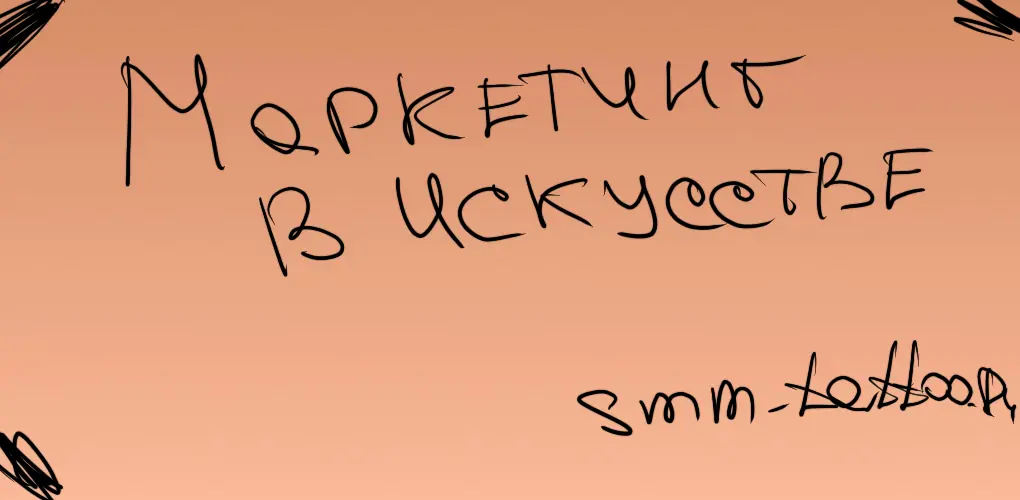 Маркетинг
в искусстве
smm-tattoo.